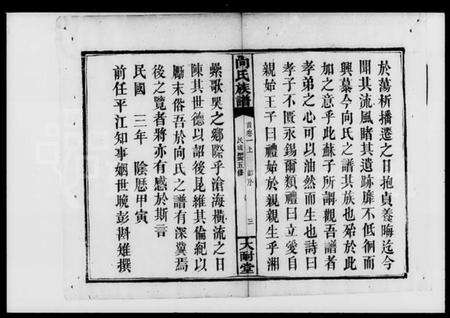 於蕩析播遷之日抱貞養晦迄今
聞其流風睹其遺跡靡不低徊而
興慕今向氏之譜其族也殆於此
加之意乎此蘇子所謂觀吾譜者
孝弟之心可以油然而生也詩曰
孝子不匱永錫爾類禮曰立愛自
親始王子曰禮始於親親生乎湘
向氏族譜
首卷上
民國譜五修
三
大耐堂
纍歌哭之鄉際乎滄海橫流之日
陳其世德以詔後昆維其倫紀以
厲末俗吾於向氏之譜有深冀焉
後之覽者將亦有感於斯言
民國 三年 陰曆甲寅
前任平江知事姻世晚彭斟雉撰